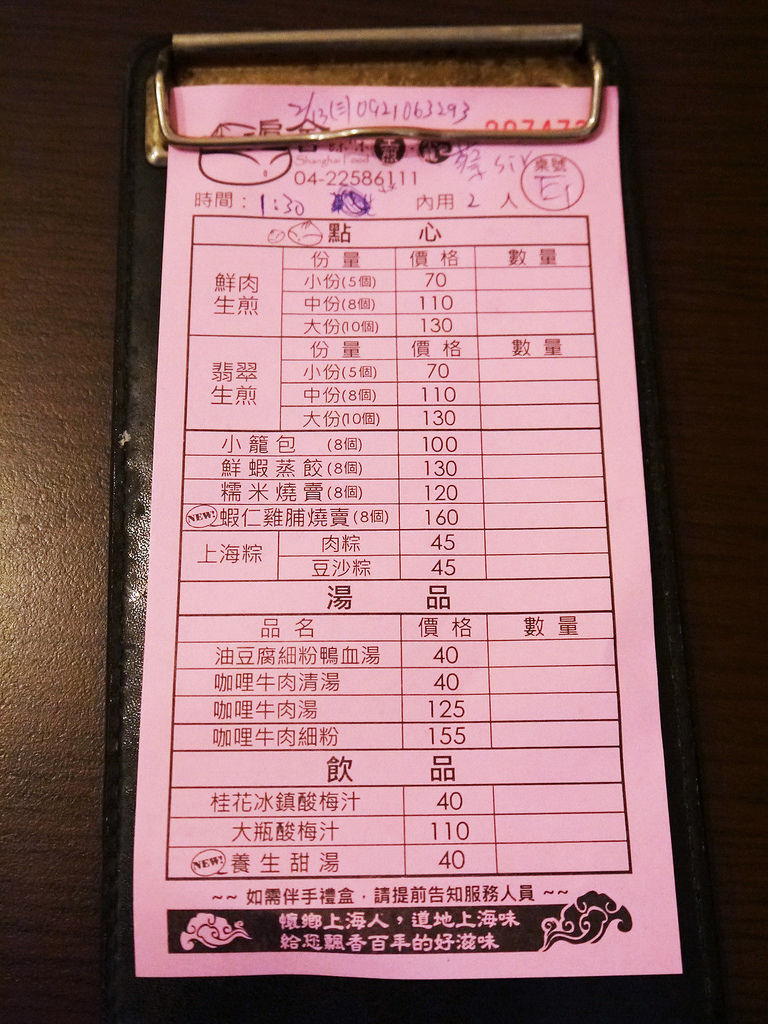 2/13(三)0921063293
Shanghai Food
04-22586111
桌號 E1
時間：1:30 內用 2 人
點 心
鮮肉生煎 份量 價格 數量
小份(5個) 70
中份(8個) 110
大份(10個) 130
翡翠生煎 份量 價格 數量
小份(5個) 70
中份(8個) 110
大份(10個) 130
小籠包 (8個) 100
鮮蝦蒸餃(8個) 130
糯米燒賣(8個) 120
NEW! 蝦仁雞脯燒賣(8個) 160
上海粽 肉粽 45
豆沙粽 45
湯 品
品名 價格 數量
油豆腐細粉鴨血湯 40
咖哩牛肉清湯 40
咖哩牛肉湯 125
咖哩牛肉細粉 155
飲 品
桂花冰鎮酸梅汁 40
大瓶酸梅汁 110
NEW! 養生甜湯 40
~~ 如需伴手禮盒，請提前告知服務人員 ~~
懷鄉上海人，道地上海味
給您飄香百年的好滋味